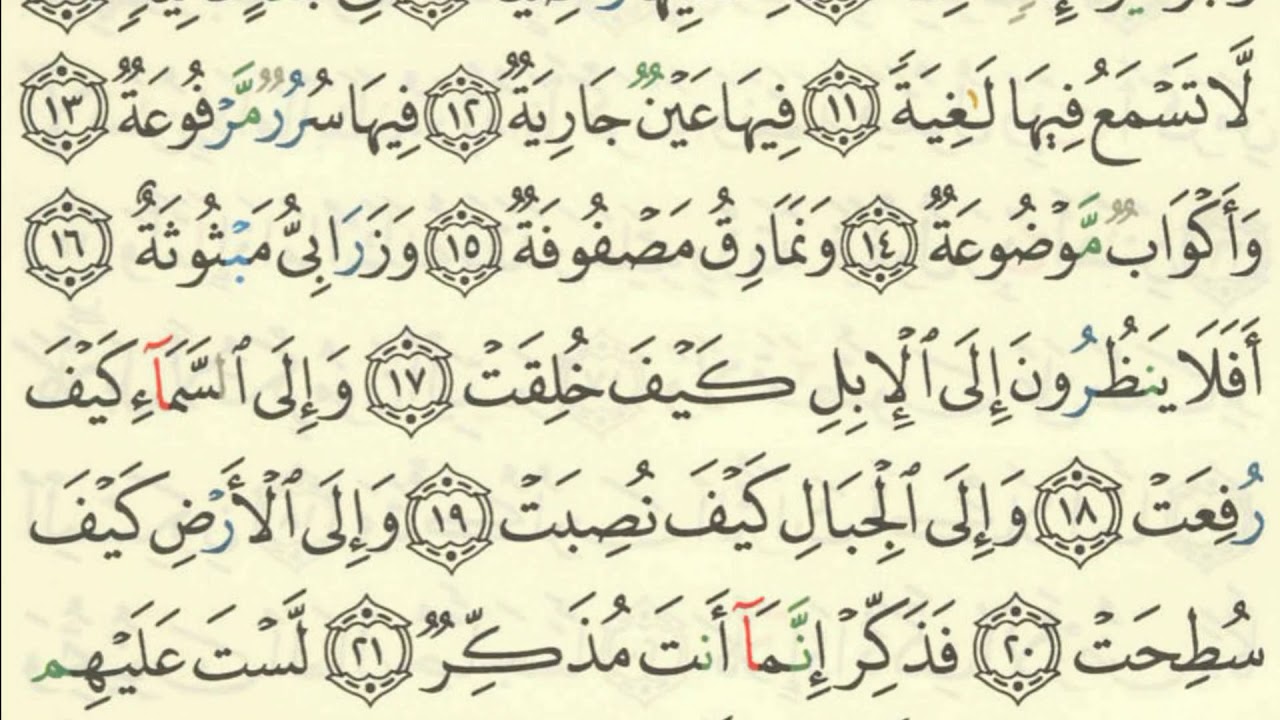 لَّا تَسْمَعُ فِيهَا لَٰغِيَةً ١١ فِيهَا عَيْنٌ جَارِيَةٌ ١٢ فِيهَا سُرُرٌ مَّرْفُوعَةٌ ١٣
وَأَكْوَابٌ مَّوْضُوعَةٌ ١٤ وَنَمَارِقُ مَصْفُوفَةٌ ١٥ وَزَرَابِيُّ مَبْثُوثَةٌ ١٦
أَفَلَا يَنظُرُونَ إِلَى ٱلْإِبِلِ كَيْفَ خُلِقَتْ ١٧ وَإِلَى ٱلسَّمَآءِ كَيْفَ
رُفِعَتْ ١٨ وَإِلَى ٱلْجِبَالِ كَيْفَ نُصِبَتْ ١٩ وَإِلَى ٱلْأَرْضِ كَيْفَ
سُطِحَتْ ٢٠ فَذَكِّرْ إِنَّمَآ أَنتَ مُذَكِّرٌ ٢١ لَّسْتَ عَلَيْهِم